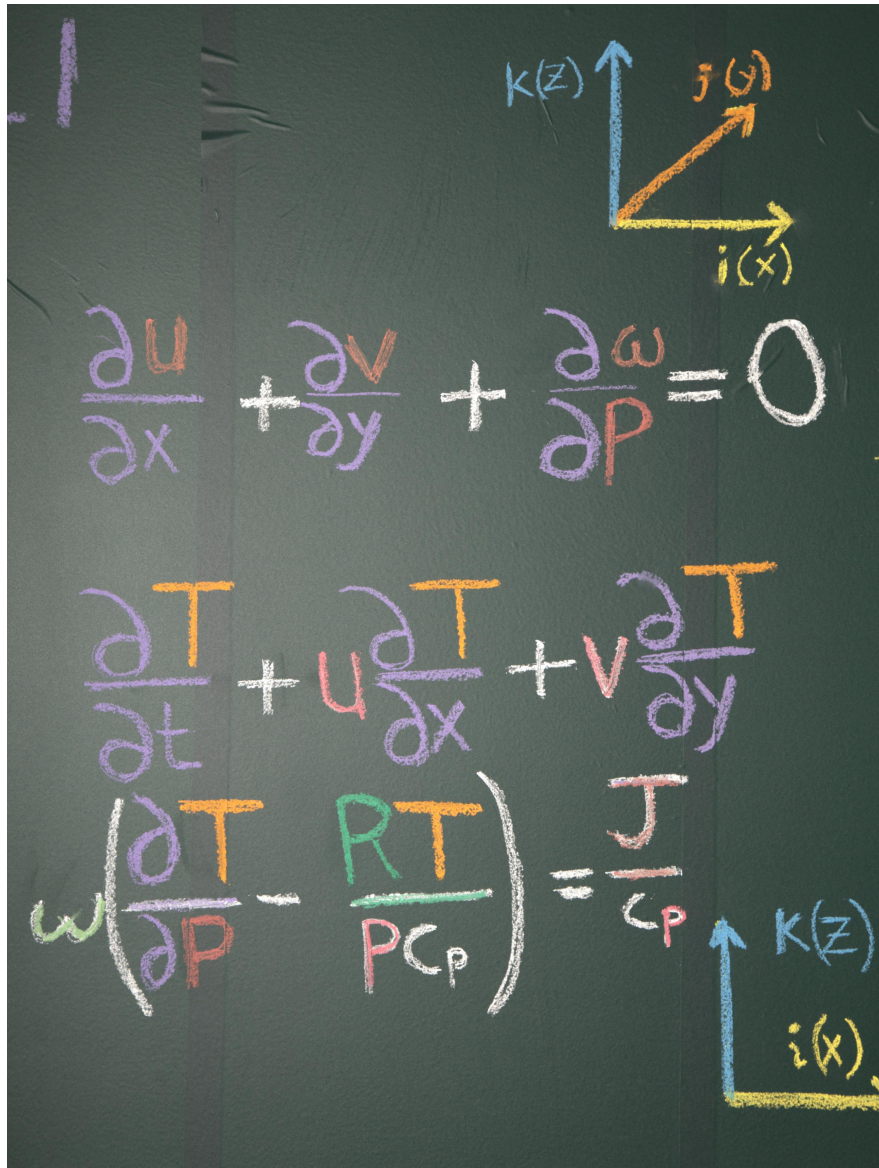 -1
k(z)
j(y)
i(x)
∂u/∂x + ∂v/∂y + ∂ω/∂P = 0
∂T/∂t + u ∂T/∂x + v ∂T/∂y
ω(∂T/∂P - RT/Pc_p) = J/c_p
k(z)
i(x)